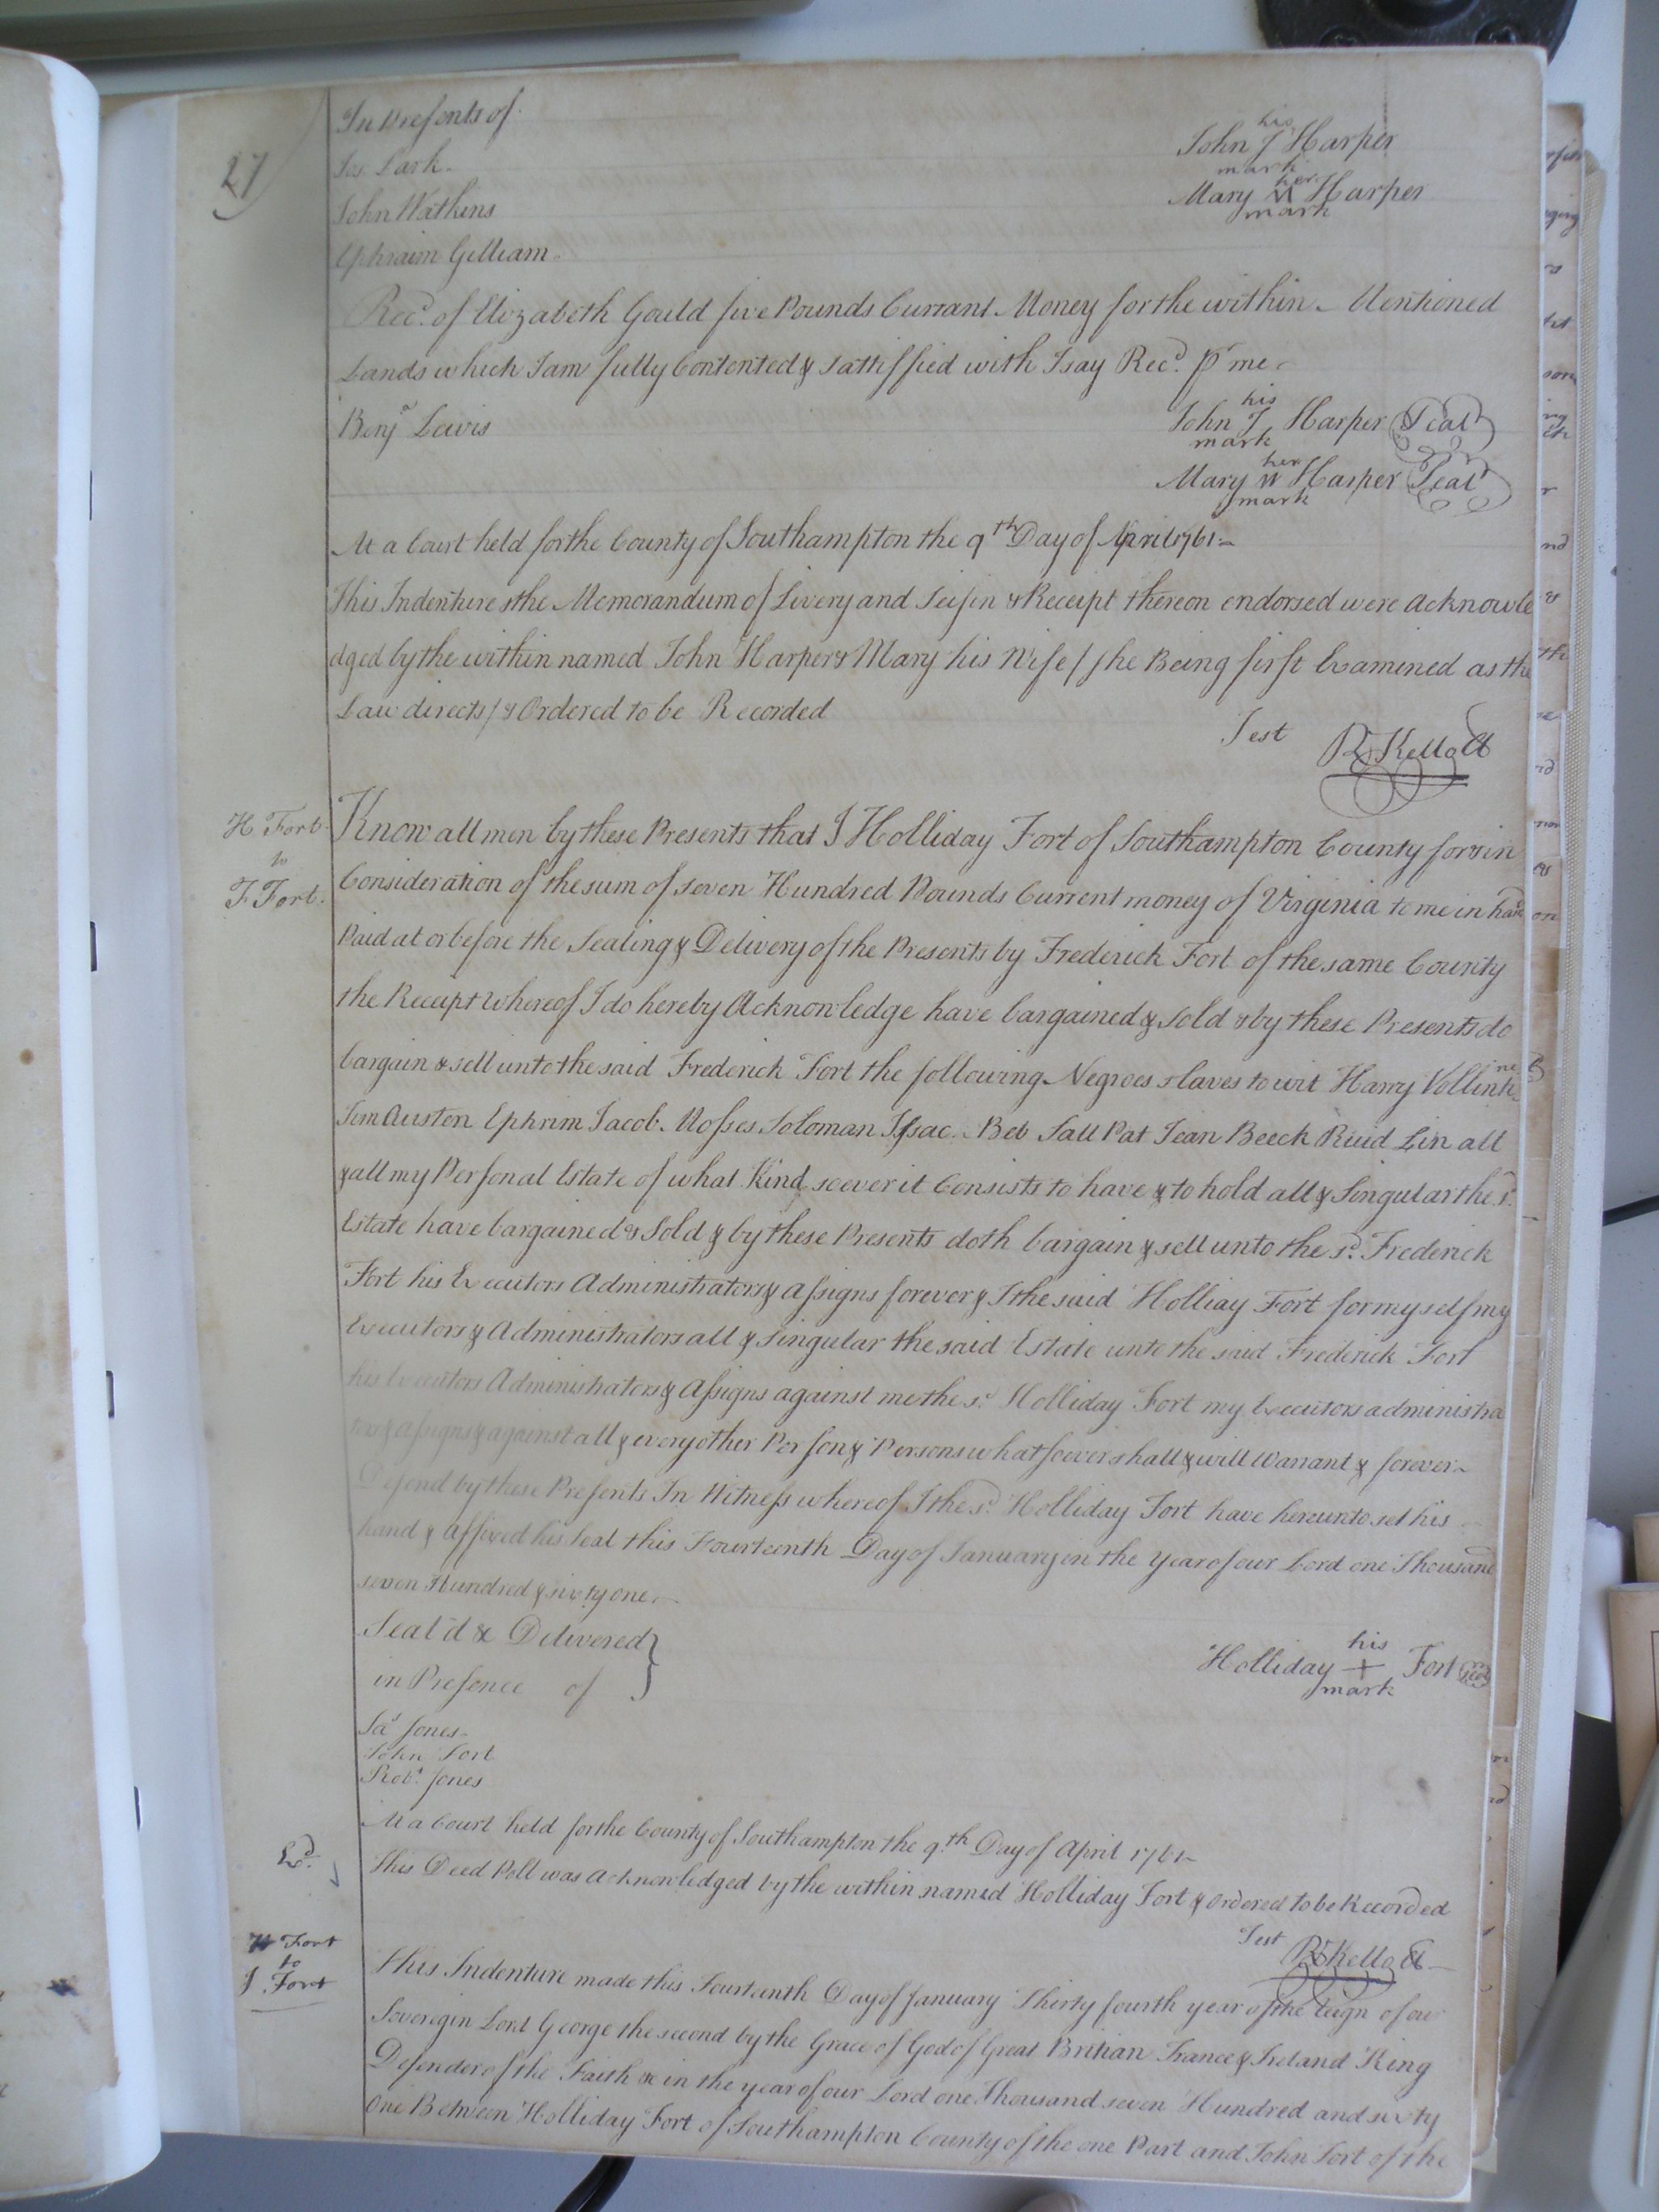 27
In Presents of
Jas. Lark.
John Watkins
Ephraim Gilliam.
his
John J Harper
mark
her
Mary M Harper
mark
Rec.d of Elizabeth Gould five Pounds Currant Money for the within Mentioned
Lands which I am fully Contented & sattisfied with I say Rec.d pr me
Benja Lewis
his
John J Harper Seal
mark
her
Mary M Harper Seal
mark
At a Court held for the County of Southampton the 9th Day of April 1761
This Indenture & the Memorandum of Livery and Seisin & Receipt thereon endorsed were acknowle
dged by the within named John Harper & Mary his Wife / she Being first Examined as the
Law directs / & Ordered to be Recorded
Test R Kello Cl
H Fort
to
F. Fort.
Know all men by these Presents that I Holliday Fort of Southampton County for & in
Consideration of the sum of seven Hundred Pounds Current money of Virginia to me in hand
Paid at or before the Sealing & Delivery of the Presents by Frederick Fort of the same County
the Receipt whereof I do hereby Acknowledge have bargained & sold & by these Presents do
bargain & sell unto the said Frederick Fort the following Negroes slaves to wit Harry
Jem Austen Ephrim Jacob Mosses Soloman Issac Beb Sall Pat Jean Beeck Lin all
& all my Personal Estate of what Kind soever it Consists to have & to hold all & Singular the s.d
Estate have bargained & Sold & by these Presents doth bargain & sell unto the s.d Frederick
Fort his Executors Administrators & assigns forever & I the said Holliay Fort for my self my
Executors & Administrators all & singular the said Estate unto the said Frederick Fort
his Executors Administrators & Assigns against me the s.d Holliday Fort my Executors administra
tors & assigns & against all & every other Person & Persons whatsoever shall & will Warrant & forever
Defend by these Presents In Witness whereof I the s.d Holliday Fort have hereunto set his
hand & affixed his Seal this Fourteenth Day of January in the Year of our Lord one Thousand
seven Hundred & sixty one.
Seal'd & Delivered
in Presence of
his
Holliday + Fort Seal
mark
Jas Jones
John Fort
Robt. Jones
At a Court held for the County of Southampton the 9.th Day of April 1761
Ex.d
This Deed Poll was acknowledged by the within named Holliday Fort & ordered to be Recorded
Test R Kello Cl
H Fort
to
J Fort
This Indenture made this Fourteenth Day of January Thirty fourth year of the Reign of our
Soveregin Lord George the second by the Grace of God of Great Britian France & Ireland King
Defender of the Faith &c in the year of our Lord one Thousand seven Hundred and sixty
one Between Holliday Fort of Southampton County of the one Part and John Fort of the